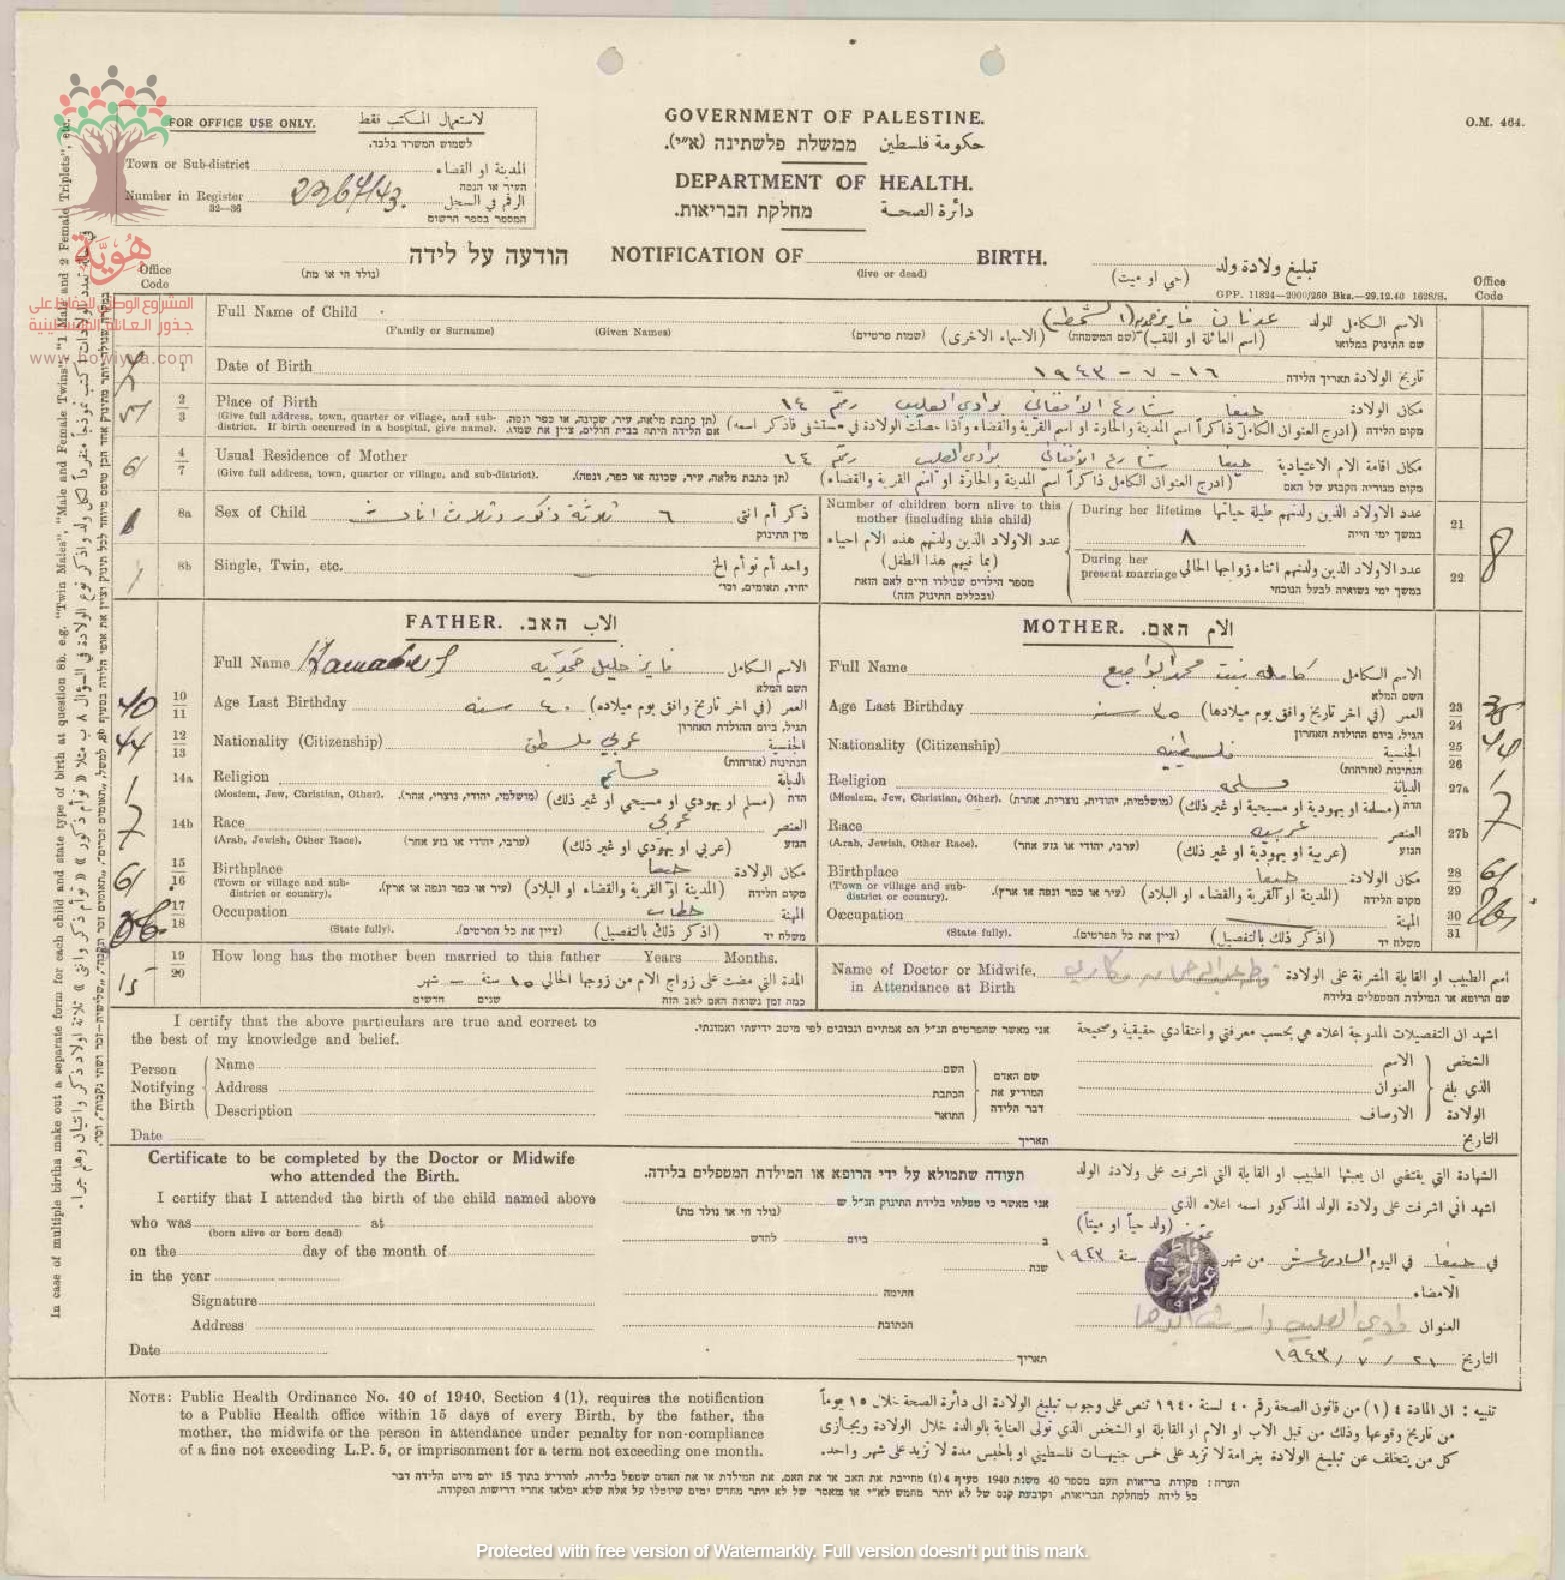 O.M. 464.
FOR OFFICE USE ONLY. لاستعمال المكتب فقط
לשמוש המשרד בלבד.
Town or Sub-district المدينة او القضاء
העיר או הנפה
Number in Register 2367/43. الرقم في السجل
32—36 המספר בספר הרשום
GOVERNMENT OF PALESTINE.
حكومة فلسطين ממשלת פלשתינה (א״י).
DEPARTMENT OF HEALTH.
دائرة الصحة מחלקת הבריאות.
הודעה על לידה NOTIFICATION OF BIRTH. تبليغ ولادة ولد
(נולד חי או מת) (live or dead) (حي او ميت)
GPP. 11824—2000/260 Bks.—29.12.40 1628/S.
Office Code
Office Code
هُويّة
المشروع الوطني للحفاظ على
جذور العائلة الفلسطينية
www.howiyya.com
Full Name of Child عدنان فايز حمديه الاسم الكامل للولد
(Family or Surname) (Given Names) (שמות פרטיים) (الاسماء الاخرى) (שם המשפחה) (اسم العائلة او اللقب) שם התינוק במלואו
1 Date of Birth ١٦ - ٧ - ١٩٤٣ تاريخ الولادة תאריך הלידה
2 3 Place of Birth حيفا شارع الأفغاني بوادي الصليب رقم ١٤ مكان الولادة
(Give full address, town, quarter or village, and sub-district. If birth occurred in a hospital, give name). (תן כתבת מלאה, עיר, שכונה, או כפר ונפה. אם הלידה היתה בבית חולים, ציין את שמו). (ادرج العنوان الكامل ذاكراً اسم المدينة والحارة او اسم القرية والقضاء واذا حصلت الولادة في مستشفى فاذكر اسمه) מקום הלידה
4 7 Usual Residence of Mother حيفا شارع الأفغاني بوادي الصليب رقم ١٤ مكان اقامة الام الاعتيادية
(Give full address, town, quarter or village, and sub-district). (תן כתבת מלאה, עיר, שכונה או כפר, ונפה). (ادرج العنوان الكامل ذاكراً اسم المدينة والحارة او اسم القرية والقضاء) מקום מגוריה הקבוע של האם
8a Sex of Child ٦ ثلاثة ذكور وثلاث اناث ذكر أم انثى
מין התינוק
8b Single, Twin, etc. واحد أم توأم الخ
יחיד, תאומים, וכו׳
Number of children born alive to this mother (including this child)
عدد الاولاد الذين ولدتهم هذه الام احياء
(بما فيهم هذا الطفل)
מספר הילדים שנולדו חיים לאם הזאת
(ובכללם התינוק הזה)
During her lifetime عدد الاولاد الذين ولدتهم طيلة حياتها 21
٨ במשך ימי חייה
During her present marriage عدد الاولاد الذين ولدتهم اثناء زواجها الحالي 22 8
במשך ימי נשואיה לבעל הנוכחי
FATHER. الاب האב.
Full Name فايز خليل حمديه الاسم الكامل
השם המלא
40 10 11 Age Last Birthday ٤٠ سنه العمر (في اخر تاريخ وافق يوم ميلاده)
הגיל, ביום ההולדת האחרון
44 12 13 Nationality (Citizenship) عربي فلسطيني الجنسية
הנתינות (אזרחות)
1 14a Religion مسلم الديانة
(Moslem, Jew, Christian, Other). (מושלמי, יהודי, נוצרי, אחר). (مسلم او يهودي او مسيحي او غير ذلك) הדת
7 14b Race عربي العنصر
(Arab, Jewish, Other Race). (ערבי, יהודי או גזע אחר) (عربي او يهودي او غير ذلك) הגזע
61 15 16 Birthplace حيفا مكان الولادة
(Town or village and sub-district or country). (עיר או כפר ונפה או ארץ). (المدينة او القرية والقضاء او البلاد) מקום הלידה
17 18 Occupation المهنة
(State fully). (ציין את כל הפרטים). (اذكر ذلك بالتفصيل) משלח יד
15 19 20 How long has the mother been married to this father Years Months.
المدة التي مضت على زواج الام من زوجها الحالي ١٥ سنة — شهر
כמה זמן נשואה האם לאב הזה שנים חדשים
MOTHER. الام האם.
Full Name كامله بنت محمد الاسم الكامل
השם המלא
Age Last Birthday ٣٥ سنه العمر (في اخر تاريخ وافق يوم ميلادها) 23 24
הגיל, ביום ההולדת האחרון
Nationality (Citizenship) فلسطينيه الجنسية 25 26 44
הנתינות (אזרחות)
Religion مسلمه الديانة 27a 1
(Moslem, Jew, Christian, Other). (מושלמית, יהודית, נוצרית, אחרת). (مسلمة او يهودية او مسيحية او غير ذلك) הדת
Race عربيه العنصر 27b 7
(Arab, Jewish, Other Race). (ערביה, יהודי או גזע אחר) (عربية او يهودية او غير ذلك) הגזע
Birthplace حيفا مكان الولادة 28 29 61
(Town or village and sub-district or country). (עיר או כפר ונפה או ארץ). (المدينة او القرية والقضاء او البلاد) מקום הלידה
Occupation المهنة 30 31
(State fully). (ציין את כל הפרטים). (اذكر ذلك بالتفصيل) משלח יד
Name of Doctor or Midwife, in Attendance at Birth اسم الطبيب او القابلة المشرفة على الولادة
שם הרופא או המילדת המטפלים בלידה
I certify that the above particulars are true and correct to the best of my knowledge and belief.
אני מאשר שהפרטים הנ״ל הם אמתיים ונכונים לפי מיטב ידיעתי ואמונתי.
اشهد ان التفصيلات المدرجة اعلاه هي بحسب معرفتي واعتقادي حقيقية وصحيحة
Person Notifying the Birth Name השם שם האדם المودיע את דבר הלידה الاسم الشخص الذي بلغ الولادة
Address הכתבת العنوان
Description התואר الاوصاف
Date תאריך التاريخ
Certificate to be completed by the Doctor or Midwife who attended the Birth.
תעודה שתמולא על ידי הרופא או המילדת המטפלים בלידה.
الشهادة التي يقتضي ان يعبئها الطبيب او القابلة التي اشرفت على ولادة الولد
I certify that I attended the birth of the child named above
אני מאשר כי טפלתי בלידת התינוק הנ״ל ש
(נולד חי או נולד מת)
اشهد أني اشرفت على ولادة الولد المذكور اسمه اعلاه الذي
(ولد حياً او ميتاً)
who was at
(born alive or born dead)
on the day of the month of ב ביום לחדש
في حيفا في اليوم السادس عشر من شهر تموز سنة ١٩٤٣
in the year שנת
Signature החתימה الامضاء
Address הכתובת العنوان
Date תאריך التاريخ ٢١ / ٧ / ١٩٤٣
NOTE: Public Health Ordinance No. 40 of 1940, Section 4 (1), requires the notification
to a Public Health office within 15 days of every Birth, by the father, the
mother, the midwife or the person in attendance under penalty for non-compliance
of a fine not exceeding L.P. 5, or imprisonment for a term not exceeding one month.
تنبيه : ان المادة ٤ (١) من قانون الصحة رقم ٤٠ لسنة ١٩٤٠ تنص على وجوب تبليغ الولادة الى دائرة الصحة خلال ١٥ يوماً
من تاريخ وقوعها وذلك من قبل الاب او الام او القابلة او الشخص الذي تولى العناية بالوالدة خلال الولادة ويجازى
كل من يتخلف عن تبليغ الولادة بغرامة لا تزيد على خمس جنيهات فلسطيني او بالحبس مدة لا تزيد على شهر واحد.
הערה: פקודת בריאות העם מספר 40 משנת 1940 סעיף 4(1) מחייבת את האב או את האם, את המילדת או את האדם שטפל בלידה, להודיע בתוך 15 יום מיום הלידה דבר
כל לידה למחלקת הבריאות, וקובעת קנס של לא יותר מחמש לא״י או מאסר של לא יותר מחדש ימים שיוטלו על אלה שלא ימלאו אחרי דרישות הפקודה.
In case of multiple births make out a separate form for each child and state type of birth at question 8b, e.g. "Twin Males", "Male and Female Twins", "1 Male and 2 Female Triplets", etc.
Protected with free version of Watermarkly. Full version doesn't put this mark.